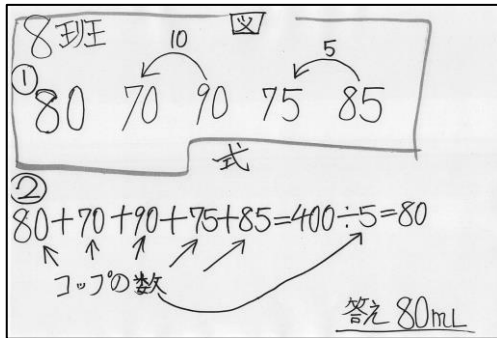 8班 図
10 5
① 80 70 90 75 85
式
②
80+70+90+75+85=400÷5=80
コップの数
答え 80mL